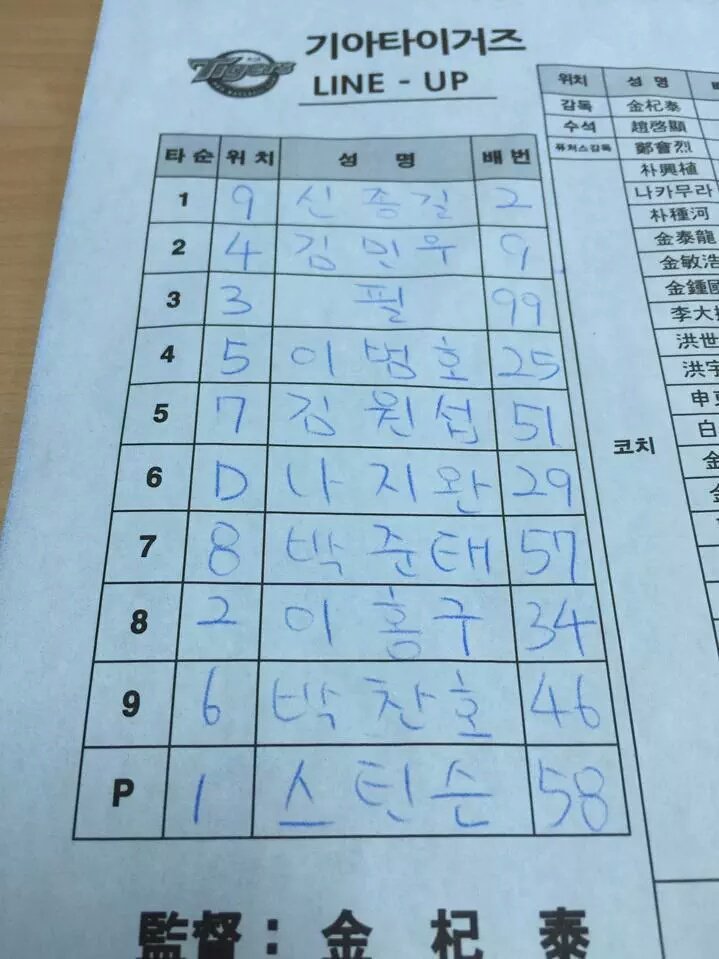 Tigers
기아타이거즈
LINE - UP
타순 위치 성 명 배번
1 9 신종길 2
2 4 김민우 9
3 3 필 99
4 5 이범호 25
5 7 김원섭 51
6 D 나지완 29
7 8 박준태 57
8 2 이홍구 34
9 6 박찬호 46
P 1 스틴슨 58
監督 : 金 杞 泰
위치 성 명
감독 金杞泰
수석 趙啓顯
퓨처스감독 鄭會烈
코치
朴興植
나카무라
朴種河
金泰龍
金敏浩
金鍾國
李大
洪世
洪宇
申東
白
金
金